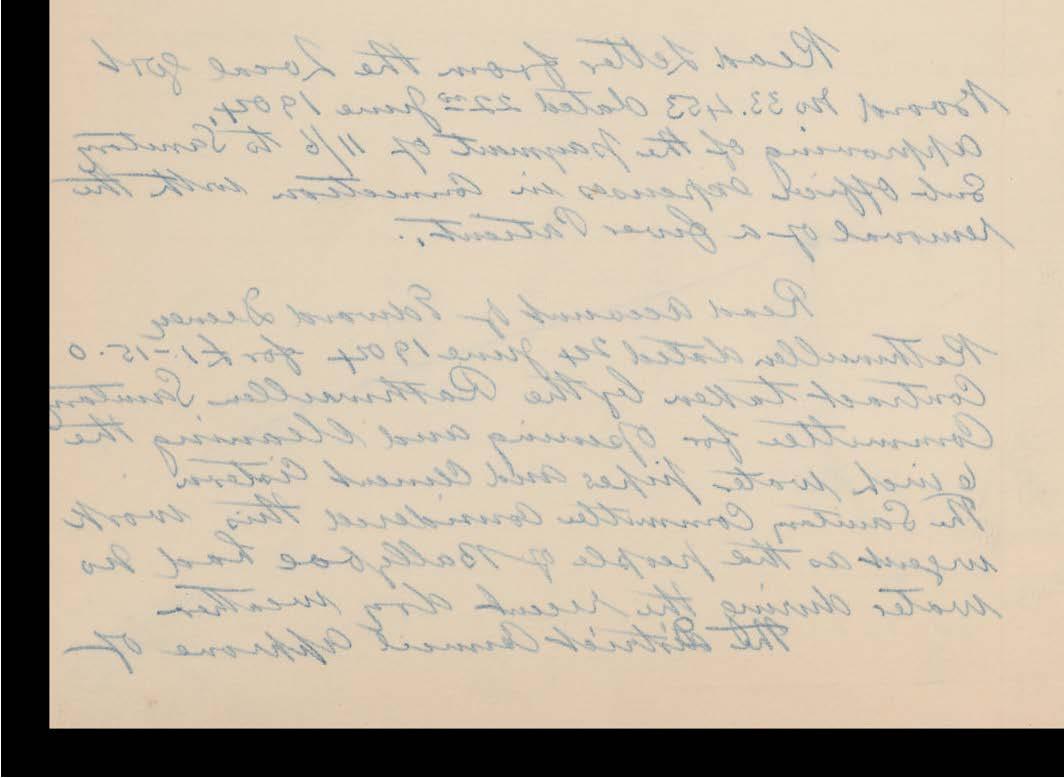 Read Letter from the Local Govt
Board No 33.453 dated 22nd June 1904,
approving of the payment of 11/6 to Sanitary
Sub Officer expenses in Connection with the
removal of a fever Patient.
Read account of Edward Deeney
Rathmullen dated 24 June 1904 for £1-15-0
Contract taken by the Rathmullen Sanitary
Committee for opening and Cleaning the
6 inch water pipes and Cement Cistern
The Sanitary Committee Considered this work
urgent as the people of Ballyboe had no
water during the recent dry weather
The District Council approve of